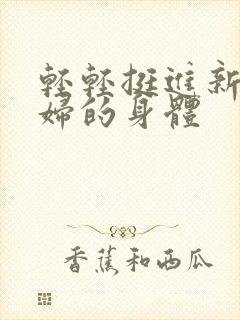 輕輕挺進新
婦的身體
香蕉和西瓜